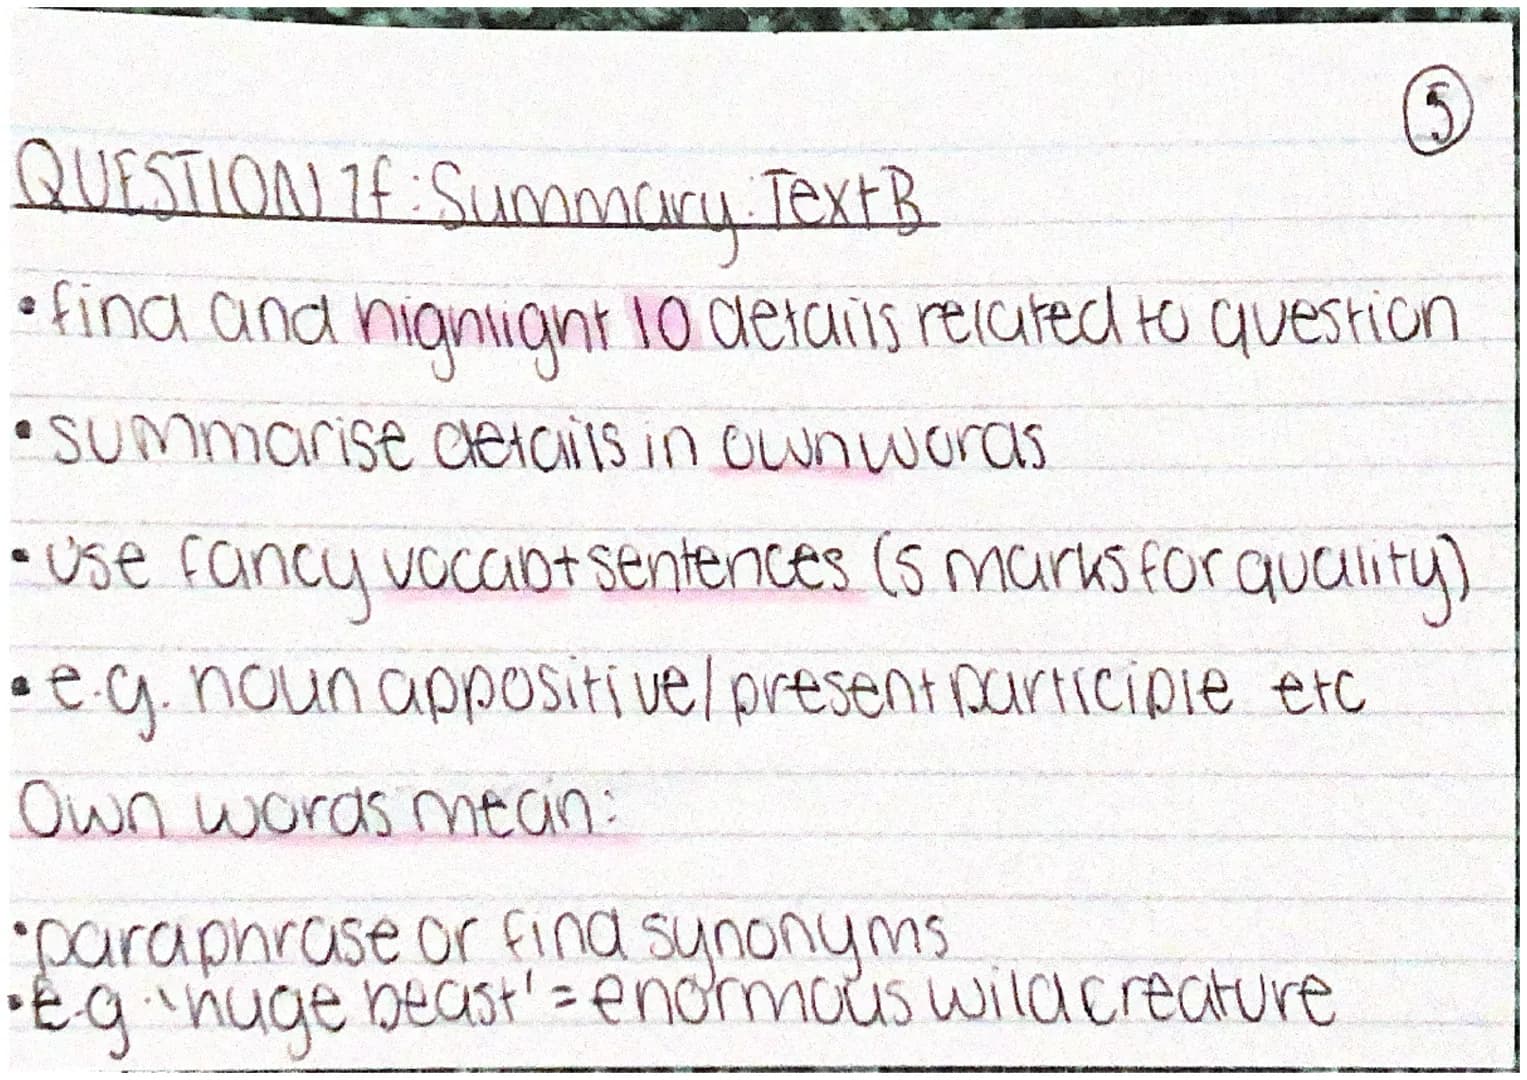 5
QUESTION 1f: Summary: Text B
• find and highlight 10 details related to question
• summarise details in own words
• use fancy vocab + sentences (5 marks for quality)
• e.g. noun appositive/present participle etc
Own words mean:
• paraphrase or find synonyms
• E.g. 'huge beast' = enormous wild creature